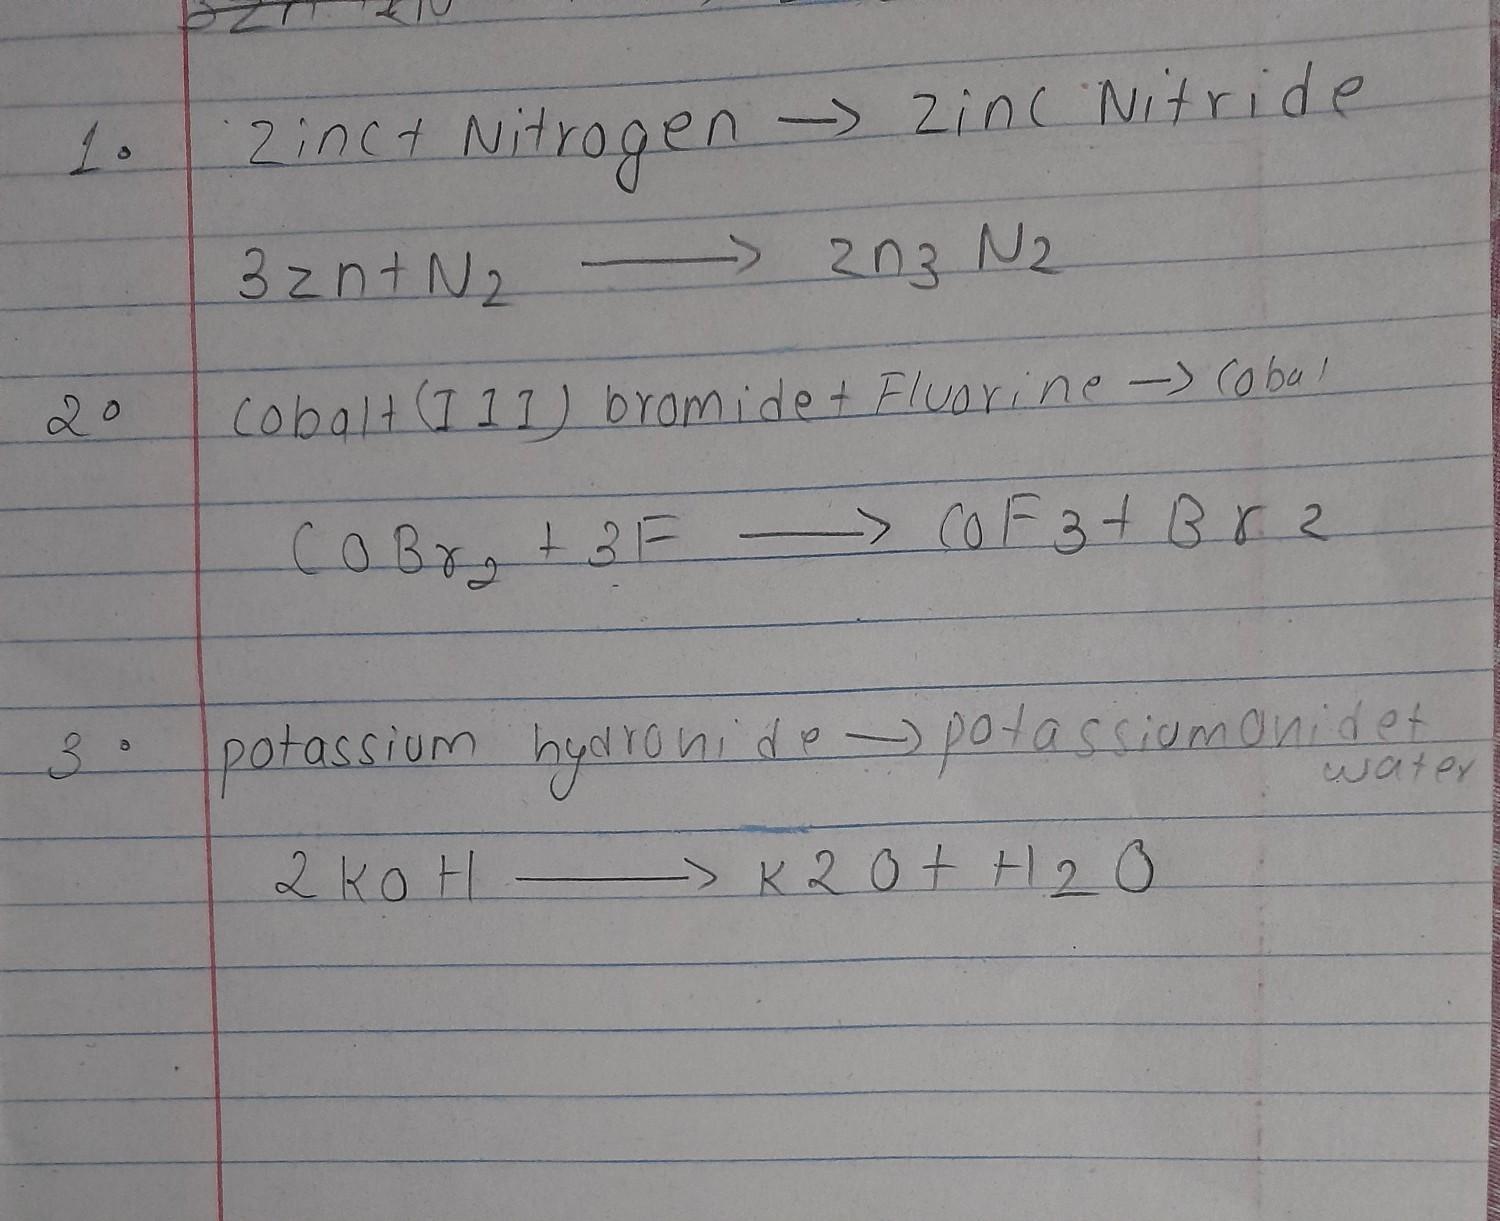 1. Zinc + Nitrogen → Zinc Nitride
3zn + N2 → Zn3 N2
2. Cobalt (III) bromide + Fluorine → Cobal
COBr2 + 3F → COF3 + Br2
3. potassium hydroxide → potassium oxide +
water
2KOH → K2O + H2O